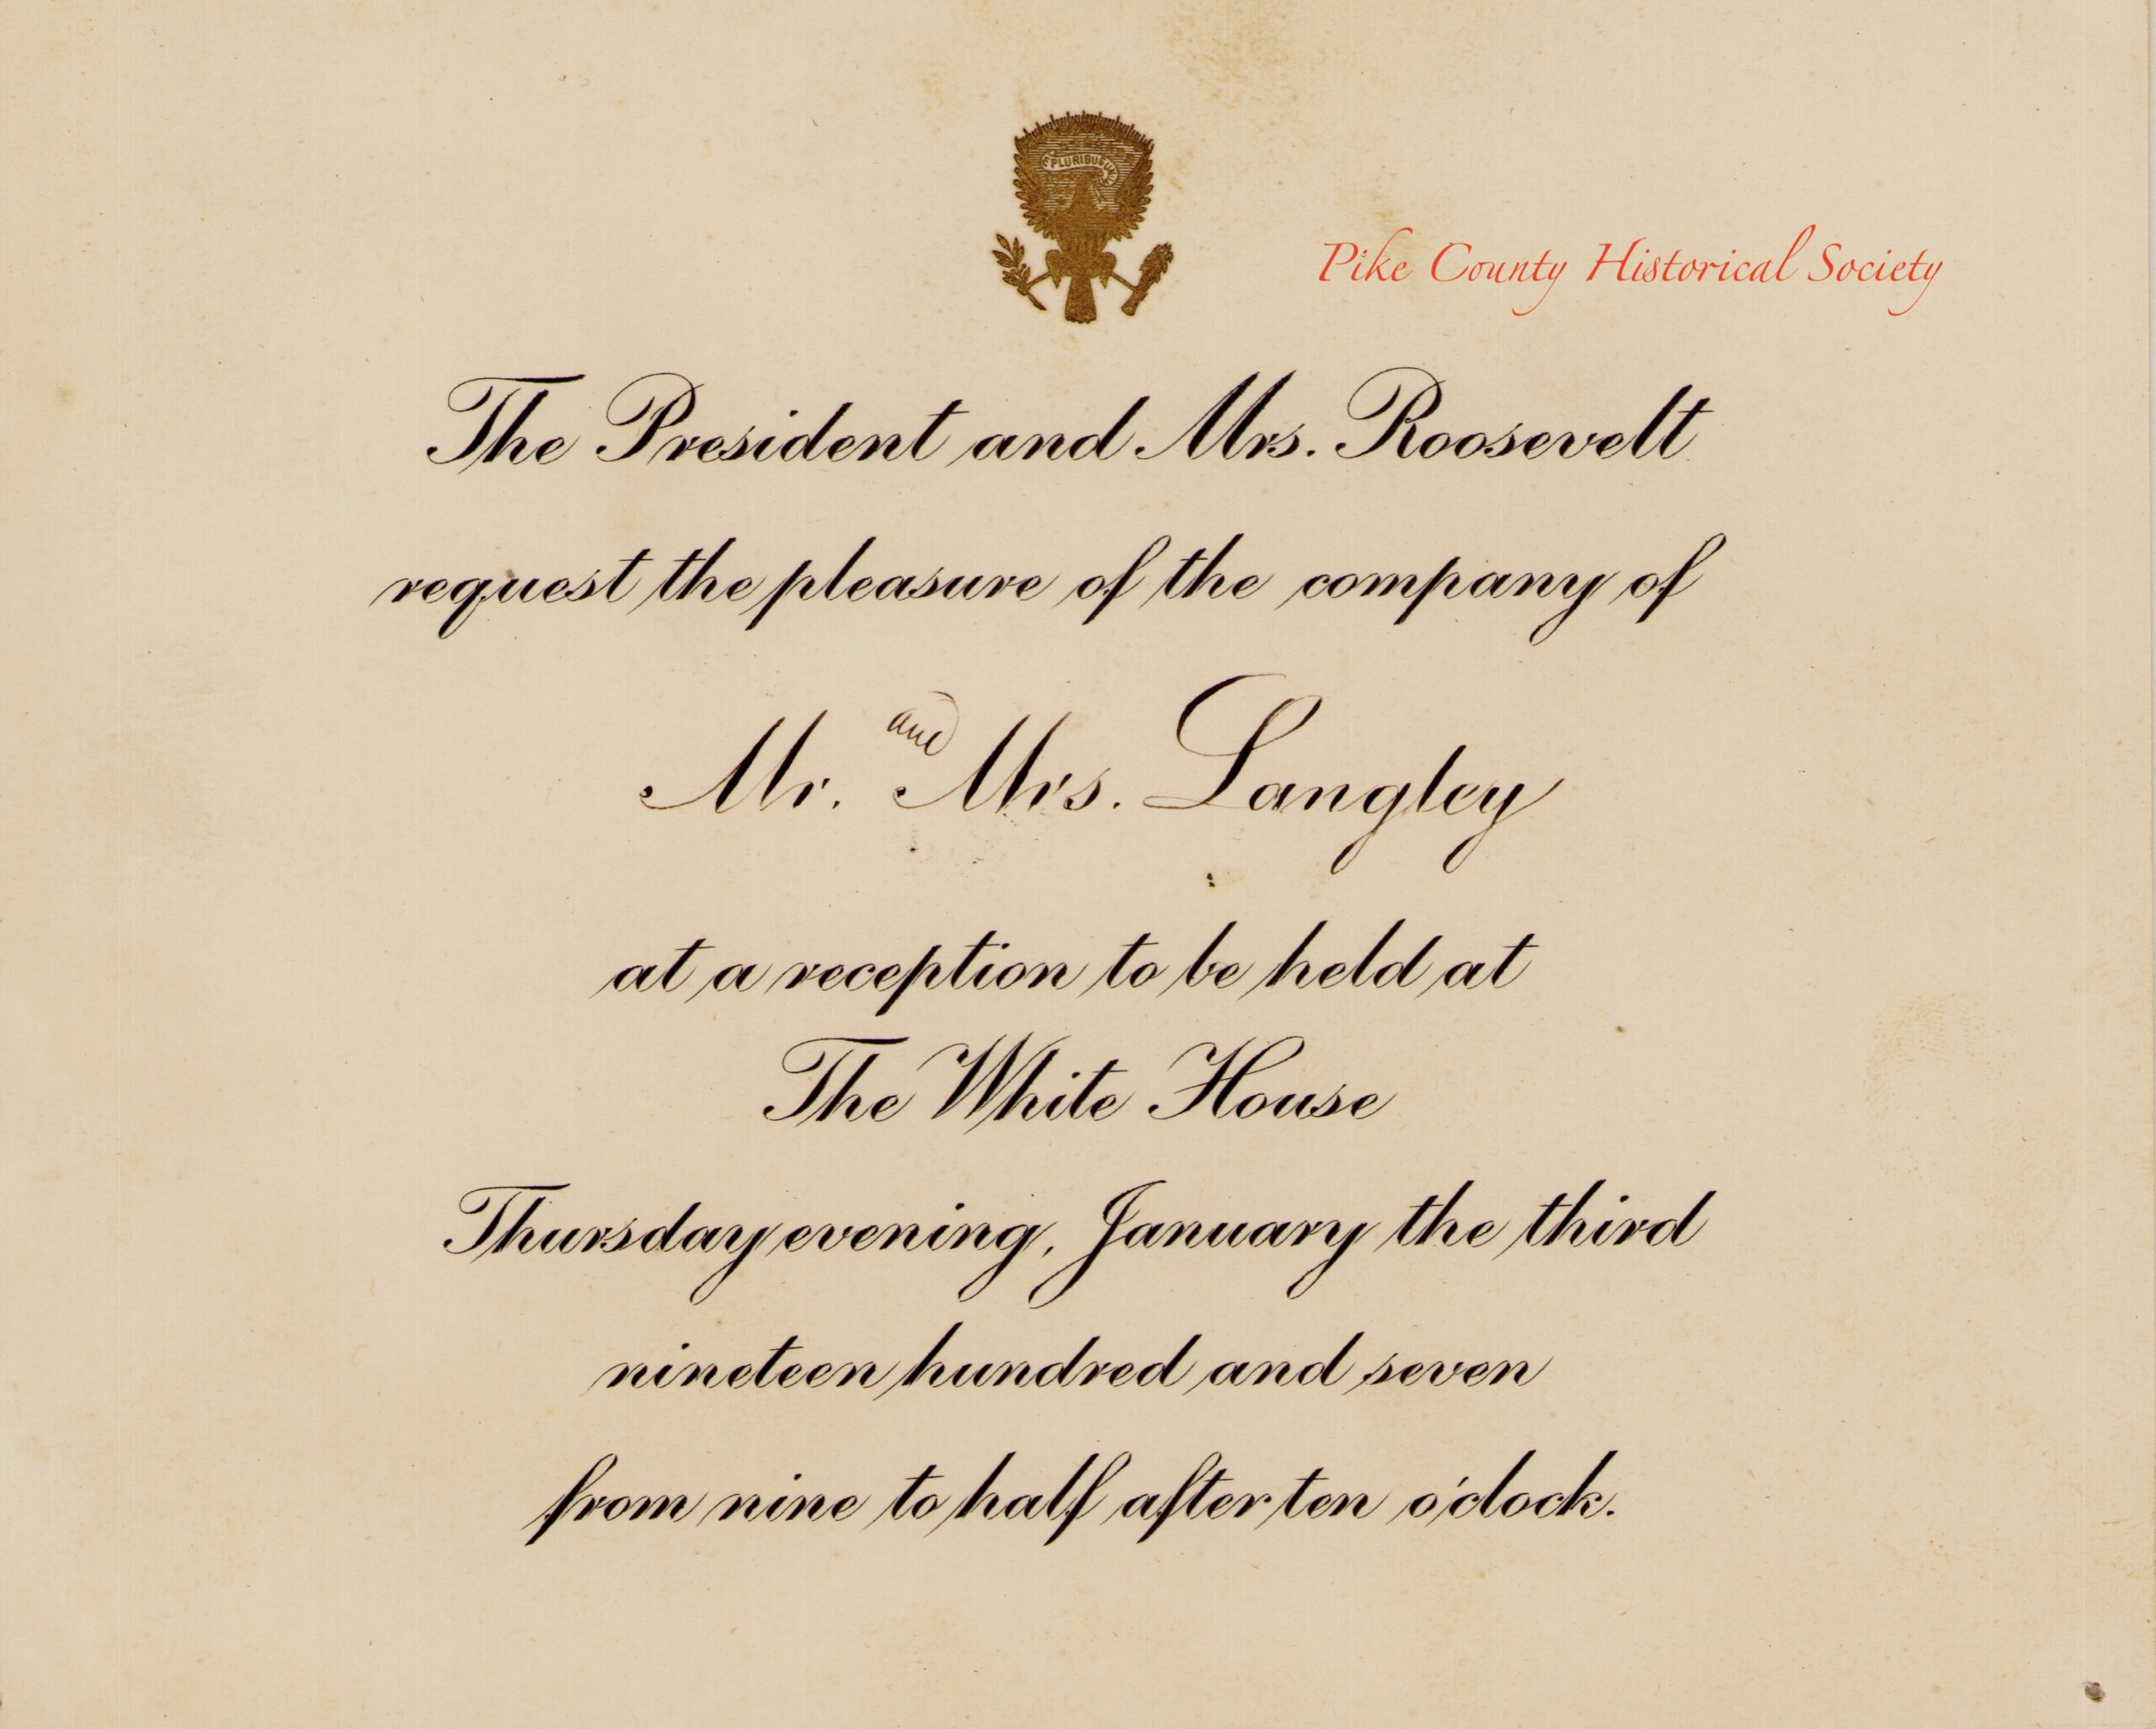 E PLURIBUS UNUM
Pike County Historical Society
The President and Mrs. Roosevelt
request the pleasure of the company of
Mr. and Mrs. Langley
at a reception to be held at
The White House
Thursday evening, January the third
nineteen hundred and seven
from nine to half after ten o'clock.